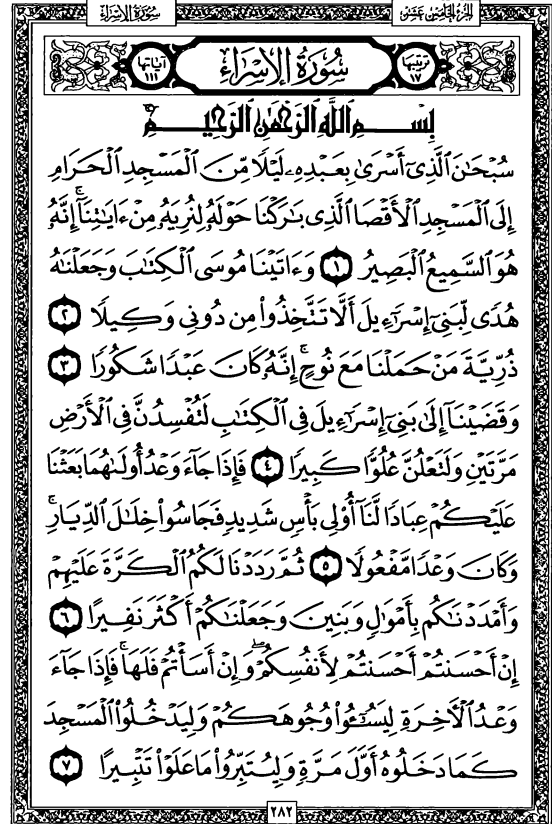 سُورَةُ الإِسْرَاءِ
الجزء الخامس عشر
ترتيبها ١٧
سُورَةُ الإِسْرَاءِ
آياتها ١١١
بِسْمِ ٱللَّهِ ٱلرَّحْمَٰنِ ٱلرَّحِيمِ
سُبْحَٰنَ ٱلَّذِىٓ أَسْرَىٰ بِعَبْدِهِۦ لَيْلًا مِّنَ ٱلْمَسْجِدِ ٱلْحَرَامِ
إِلَى ٱلْمَسْجِدِ ٱلْأَقْصَا ٱلَّذِى بَٰرَكْنَا حَوْلَهُۥ لِنُرِيَهُۥ مِنْ ءَايَٰتِنَآ ۚ إِنَّهُۥ
هُوَ ٱلسَّمِيعُ ٱلْبَصِيرُ ١ وَءَاتَيْنَا مُوسَى ٱلْكِتَٰبَ وَجَعَلْنَٰهُ
هُدًى لِّبَنِىٓ إِسْرَٰٓءِيلَ أَلَّا تَتَّخِذُوا۟ مِن دُونِى وَكِيلًا ٢
ذُرِّيَّةَ مَنْ حَمَلْنَا مَعَ نُوحٍ ۚ إِنَّهُۥ كَانَ عَبْدًا شَكُورًا ٣
وَقَضَيْنَآ إِلَىٰ بَنِىٓ إِسْرَٰٓءِيلَ فِى ٱلْكِتَٰبِ لَتُفْسِدُنَّ فِى ٱلْأَرْضِ
مَرَّتَيْنِ وَلَتَعْلُنَّ عُلُوًّا كَبِيرًا ٤ فَإِذَا جَآءَ وَعْدُ أُولَىٰهُمَا بَعَثْنَا
عَلَيْكُمْ عِبَادًا لَّنَآ أُو۟لِى بَأْسٍ شَدِيدٍ فَجَاسُوا۟ خِلَٰلَ ٱلدِّيَارِ ۚ
وَكَانَ وَعْدًا مَّفْعُولًا ٥ ثُمَّ رَدَدْنَا لَكُمُ ٱلْكَرَّةَ عَلَيْهِمْ
وَأَمْدَدْنَٰكُم بِأَمْوَٰلٍ وَبَنِينَ وَجَعَلْنَٰكُمْ أَكْثَرَ نَفِيرًا ٦
إِنْ أَحْسَنتُمْ أَحْسَنتُمْ لِأَنفُسِكُمْ ۖ وَإِنْ أَسَأْتُمْ فَلَهَا ۚ فَإِذَا جَآءَ
وَعْدُ ٱلْءَاخِرَةِ لِيَسُۥٓـُٔوا۟ وُجُوهَكُمْ وَلِيَدْخُلُوا۟ ٱلْمَسْجِدَ
كَمَا دَخَلُوهُ أَوَّلَ مَرَّةٍ وَلِيُتَبِّرُوا۟ مَا عَلَوْا۟ تَتْبِيرًا ٧
٢٨٢